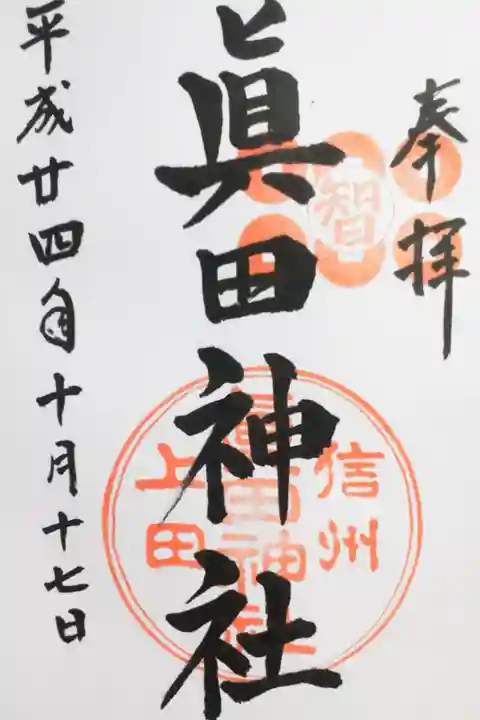 奉拝
智
眞田神社
信州
眞田神社
上田
平成廿四年十月十七日